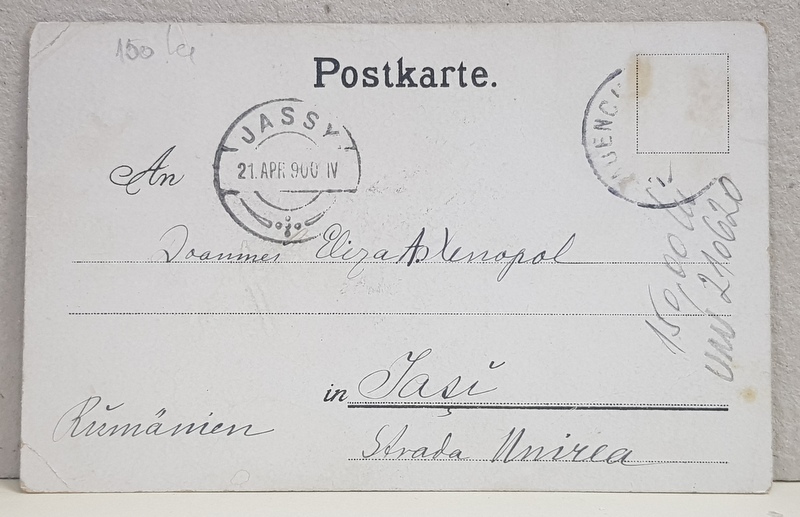 150 lei
Postkarte.
JASSY
21. APR 900 IV
MUENC
An
Doamnei Eliza A Xenopol
in Iași
Rumänien
Strada Unirea
150,00 lei
210620